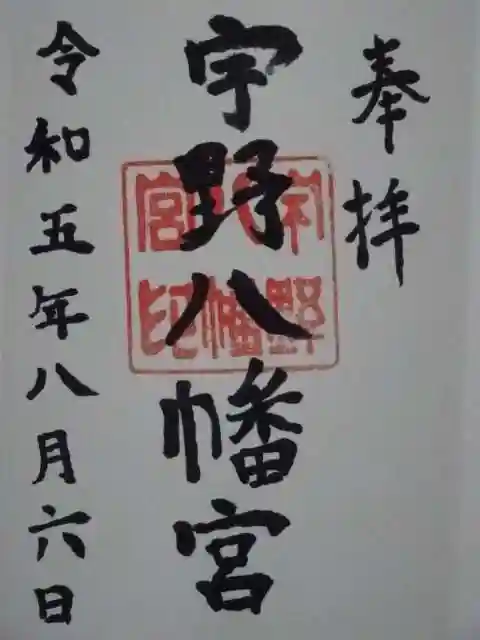 奉拝
宇野八幡宮
宇野八幡宮印
令和五年八月六日